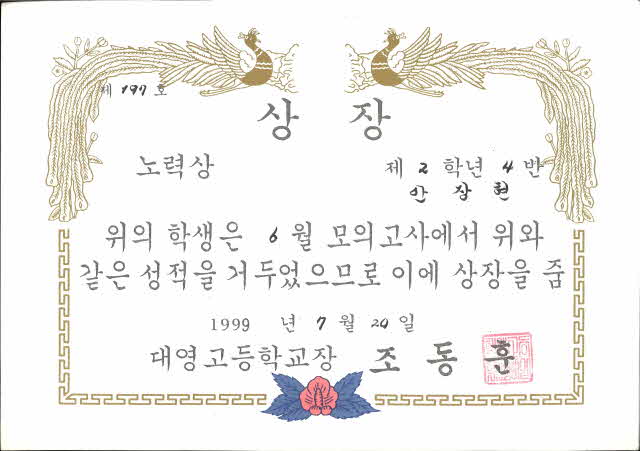 제 197 호
상 장
노력상
제 2 학년 4 반
안 장 현
위의 학생은 6 월 모의고사에서 위와
같은 성적을 거두었으므로 이에 상장을 줌
1999 년 7 월 20 일
대영고등학교장 조 동 훈